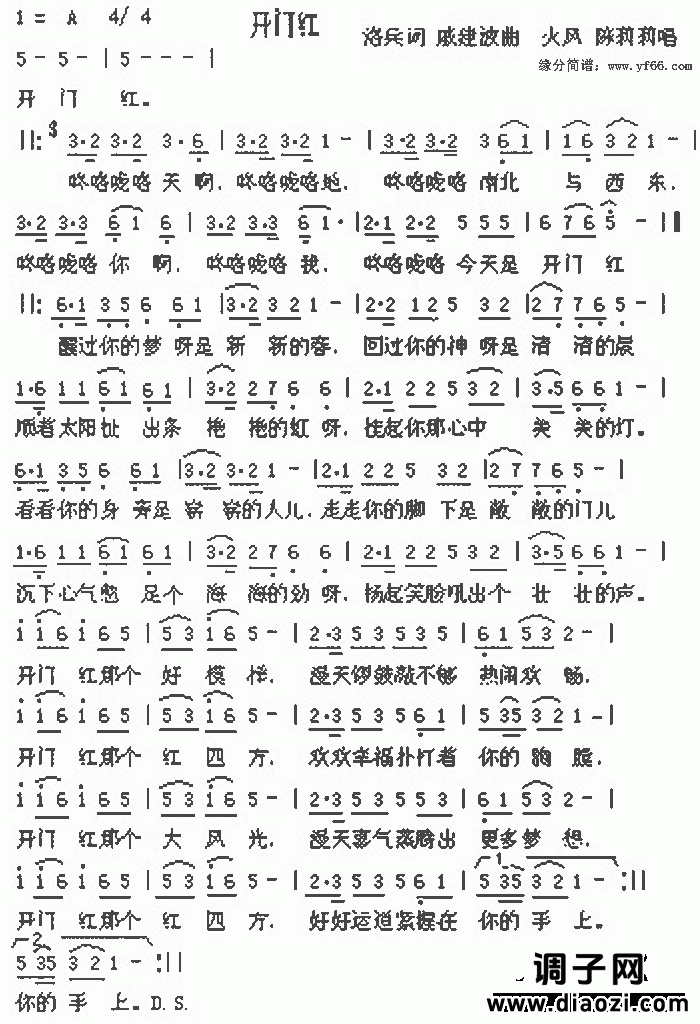 1 = A 4/4
开门红
洛兵词 戚建波曲 火风 陈莉莉唱
缘分简谱：www.yf66.com
5 - 5 - | 5 - - - |
开 门 红。
||: 3 3·2 3·2 3·6 | 3·2 3·2 1 - | 3·2 3·2 3 6 1 | 1 6 3 2 1 - |
咚咯咙咯 天 啊, 咚咯咙咯地, 咚咯咙咯 南北 与 西东,
3·2 3·3 6 1 6 | 3·2 3·3 6 1· | 2·1 2·2 5 5 5 | 6 7 6 5 - ]
咚咯咙咯 你 啊, 咚咯咙咯 我, 咚咯咙咯 今天是 开门 红
||: 6·1 3 5 6 6 1 | 3·2 3 2 1 - | 2·2 1 2 5 3 2 | 2 7 7 6 5 - |
醒过你的梦 呀是 新 新的春, 回过你的神 呀是 清 清的晨
1·6 1 1 6 1 6 1 | 3·2 2 7 6 6 | 2·1 2 2 5 3 2 | 3·5 6 6 1 - |
顺着太阳扯 出条 艳 艳的虹 呀, 挂起你那心中 美 美的灯。
6·1 3 5 6 6 1 | 3·2 3·2 1 - | 2·1 2 2 5 3 2 | 2 7 7 6 5 - |
看看你的身 旁是 崭 崭的人儿, 走走你的脚 下是 敞 敞的门儿
1·6 1 1 6 1 6 1 | 3·2 2 7 6 6 | 2·1 2 2 5 3 2 | 3·5 6 6 1 - |
沉下心气憋 足个 海 海的劲 呀, 扬起笑脸吼出个 壮 壮的声。
i i 6 i 6 5 | 5 3 i 6 5 - | 2·3 5 3 5 3 5 | 6 1 5 3 2 - |
开门 红那个 好 模 样, 漫天锣鼓敲不够 热闹欢 畅,
i i 6 i 6 5 | 5 3 i 6 5 - | 2·3 5 3 5 6 1 | 5 35 3 2 1 - |
开门 红那个 红 四 方, 欢欢幸福扑打着 你的 胸 膛,
i i 6 i 6 5 | 5 3 i 6 5 - | 2·3 5 3 5 3 5 | 6 1 5 3 2 - |
开门 红那个 大 风 光, 漫天喜气蒸腾出 更多梦 想,
i i 6 i 6 5 | 5 3 i 6 5 - | 2·3 5 3 5 6 1 | 1 5 35 3 2 1 - :||
开门 红那个 红 四 方, 好好运道紧握在 你的 手 上。
2 5 35 3 2 1 - :||
你的 手 上。D.S.
调子网
www.diaozi.com